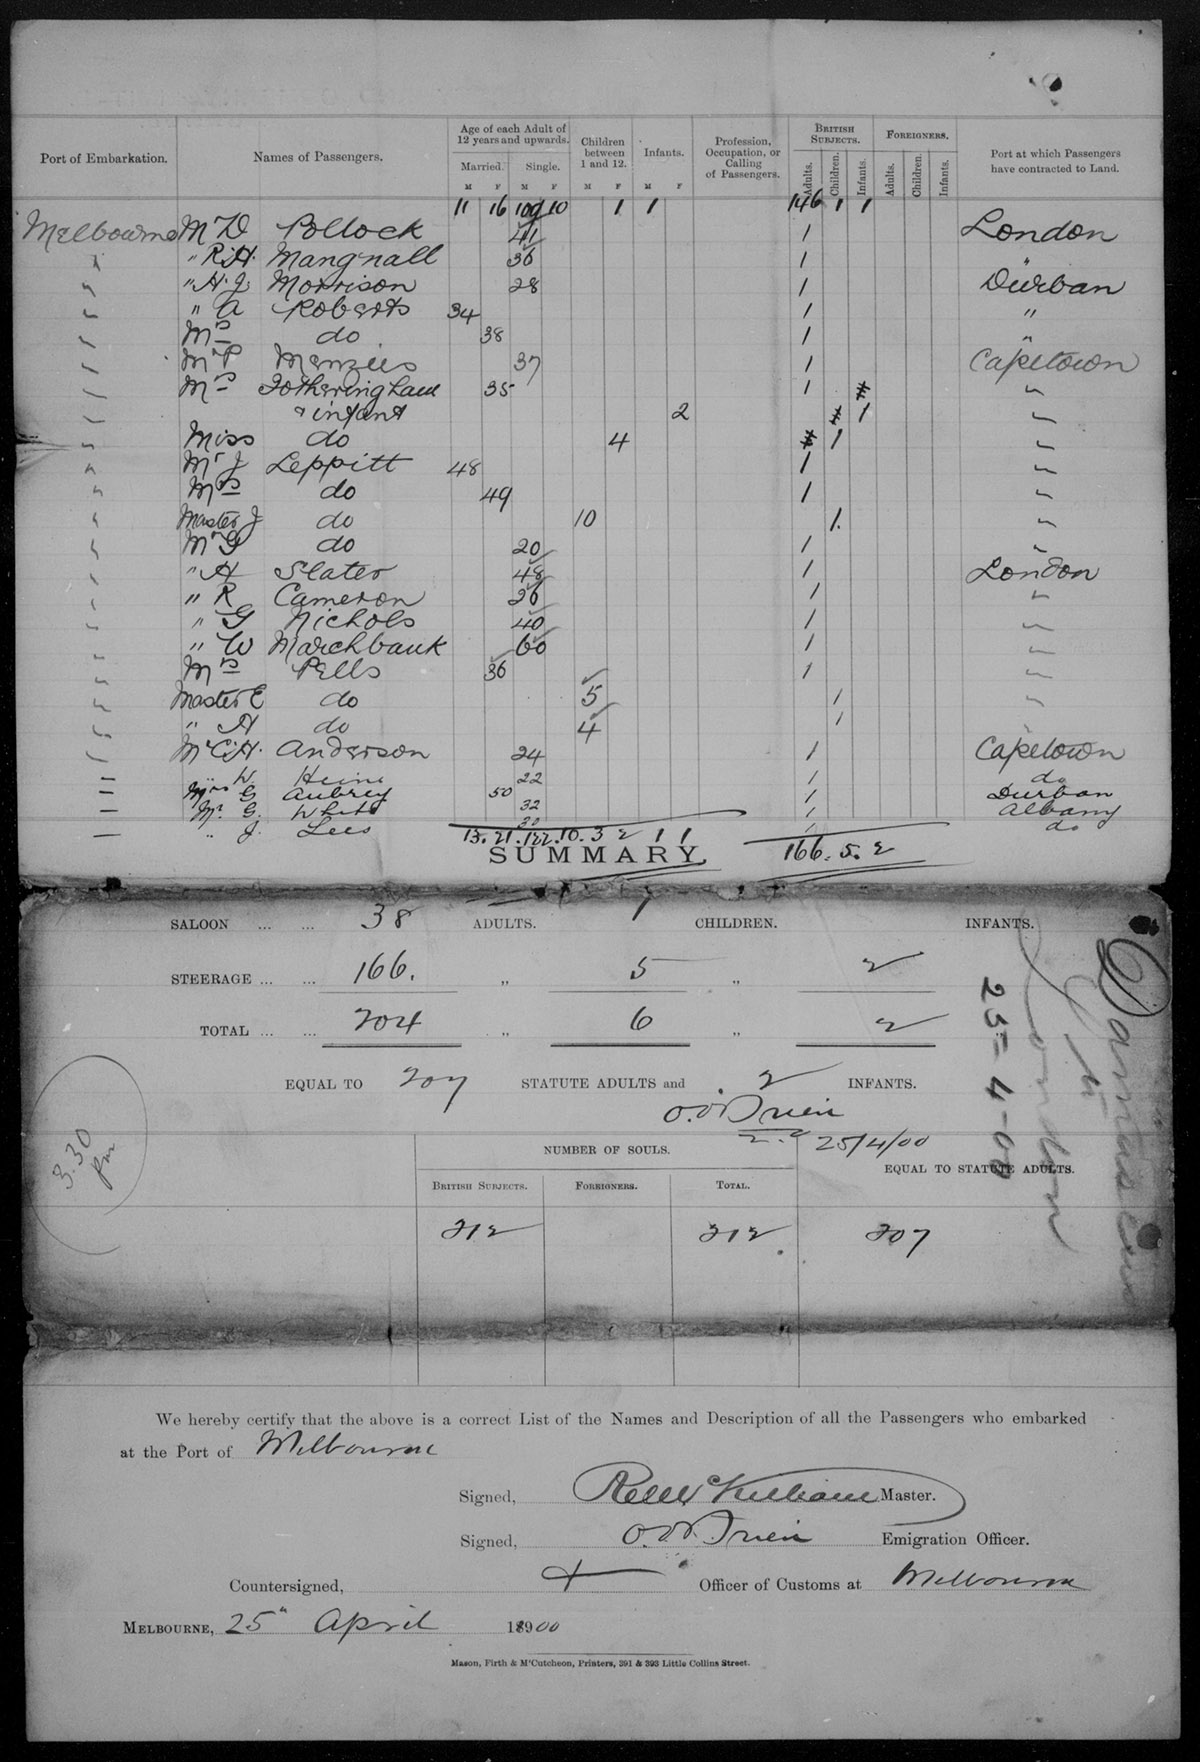 Port of Embarkation. Names of Passengers. Age of each Adult of 12 years and upwards. Children between 1 and 12. Infants. Profession, Occupation, or Calling of Passengers. British Subjects. Foreigners. Port at which Passengers have contracted to Land.
Married. Single. Adults. Children. Infants. Adults. Children. Infants.
M F M F M F M F
11 16 109 10 1 1 146 1 1
Melbourne Mr D Pollock 41 1 London
" " R.H. Mangnall 36 1 "
" " H.J. Morrison 28 1 Durban
" " A Roberts 34 1 "
" Mrs do 38 1 "
" Mr P Menzies 37 1 Capetown
" Mrs Fotheringham 35 1 "
" & infant 2 1 "
" Miss do 4 1 "
" Mr J Leppitt 48 1 "
" Mrs do 49 1 "
" Master J do 10 1 "
" Mr G do 20 1 "
" " A Slater 48 1 London
" " R Cameron 26 1 "
" " G Nichols 40 1 "
" " W Marchbank 60 1 "
" Mrs Pells 36 1 "
" Master E do 5 1 "
" " A do 4 1 "
" Mr C.H. Anderson 24 1 Capetown
" " W. Heine 22 1 do
" Mrs G Aubrey 50 1 Durban
" Mr. G. White 32 1 Albany
" " J. Lees 30 1 do
13. 21. 122. 10. 3 2 1 1 166. 5. 2
SUMMARY.
SALOON ... ... 38 ADULTS. 1 CHILDREN. INFANTS.
STEERAGE ... ... 166. " 5 " 2
TOTAL ... ... 204 " 6 " 2
EQUAL TO 207 STATUTE ADULTS and 2 INFANTS.
O. O'Brien
25/4/00
3.30 pm
London
25-4-00
NUMBER OF SOULS. EQUAL TO STATUTE ADULTS.
British Subjects. Foreigners. Total.
212 212 207
We hereby certify that the above is a correct List of the Names and Description of all the Passengers who embarked
at the Port of Melbourne
Signed, Master.
Signed, O. O'Brien Emigration Officer.
Countersigned, Officer of Customs at Melbourne
Melbourne, 25th April 1900
Mason, Firth & M'Cutcheon, Printers, 391 & 393 Little Collins Street.